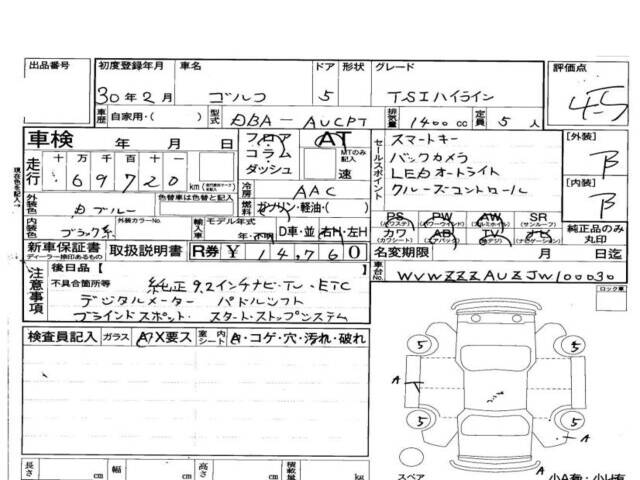 出品番号 初度登録年月 車名 ドア 形状 グレード 評価点
30年2月 ゴルフ 5 TSIハイライン 4.5
車歴 自家用・( ) 型式 DBA-AUCPT 排気量 1400cc 定員 5人
車検 年 月 日 フロア・コラム・ダッシュ AT MTのみ記入 速
走行 十 万 千 百 十 一
69720 km
セールスポイント
スマートキー
バックカメラ
LEDオートライト
クルーズコントロール
[外装] B
[内装] B
外装色 ブルー 色替車は色替と記入
冷房 AAC
燃料 ガソリン・軽油・( )
内装色 ブラック系 外装カラーNo.
輸入車記入 モデル年式 年・不明 D車・並 右H・左H
PS (パワステ) PW (パワーウインド) AW (アルミホイル) SR (サンルーフ)
カワ (カワシート) AB (エアバック) TV (地デジ) ナビ (ナビゲーション)
純正品のみ丸印
新車保証書 ディーラー捺印あるもの 取扱説明書 R券 ¥14,760
名変期限 月 日迄
車台No. WVWZZZAUZJW100030
注意事項
後日品 [ ]
不具合箇所等 純正9.2インチナビ・TV・ETC
デジタルメーター パドルシフト
ブラインドスポット・スタートストップシステム
ロック車
検査員記入 ガラス A・X要ス 室内シート A・コゲ・穴・汚れ・破れ
5 5
A
5 5
A
スペア
長さ cm 幅 cm 高さ cm 積載量 kg
現在色を記入→